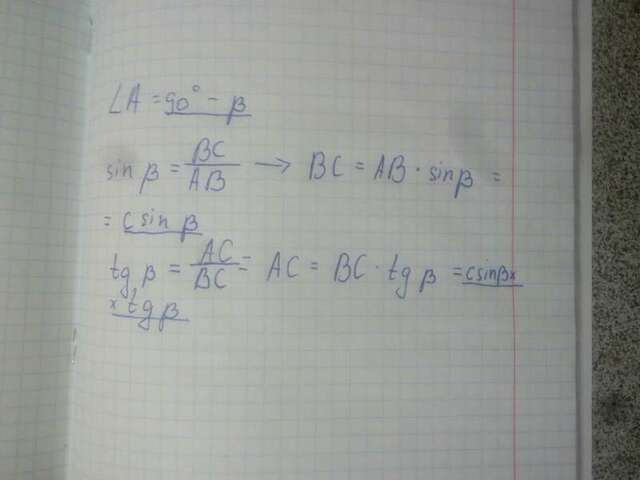 ∠A = 90° − β
sin β = BC/AB → BC = AB · sin β =
= c sin β
tg β = AC/BC = AC = BC · tg β = c sin β ×
× tg β